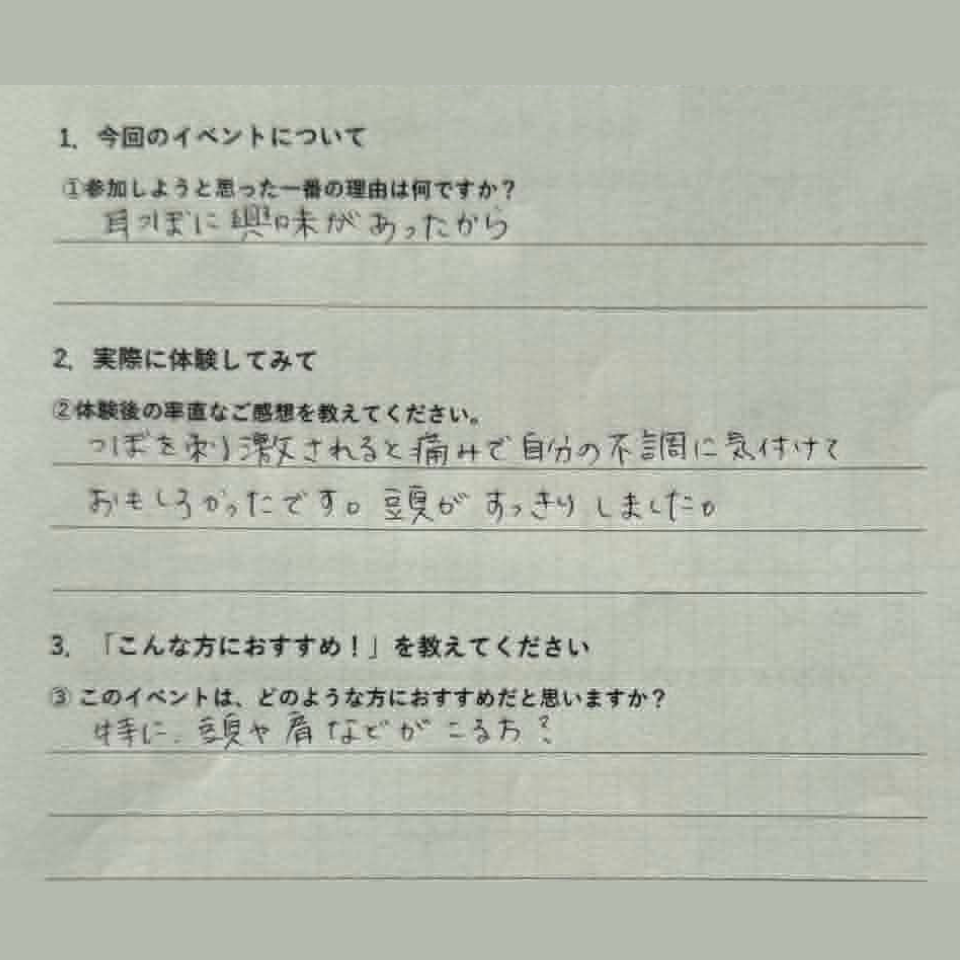 1. 今回のイベントについて
①参加しようと思った一番の理由は何ですか？
耳つぼに興味があったから
2. 実際に体験してみて
②体験後の率直なご感想を教えてください。
つぼを刺激されると痛みで自分の不調に気付けて
おもしろかったです。頭がすっきりしました。
3. 「こんな方におすすめ！」を教えてください
③ このイベントは、どのような方におすすめだと思いますか？
特に、頭や肩などがこる方？